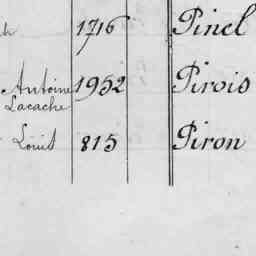 1716 Pinel
Antoine 1952 Pirois
Lacache
Louis 815 Piron